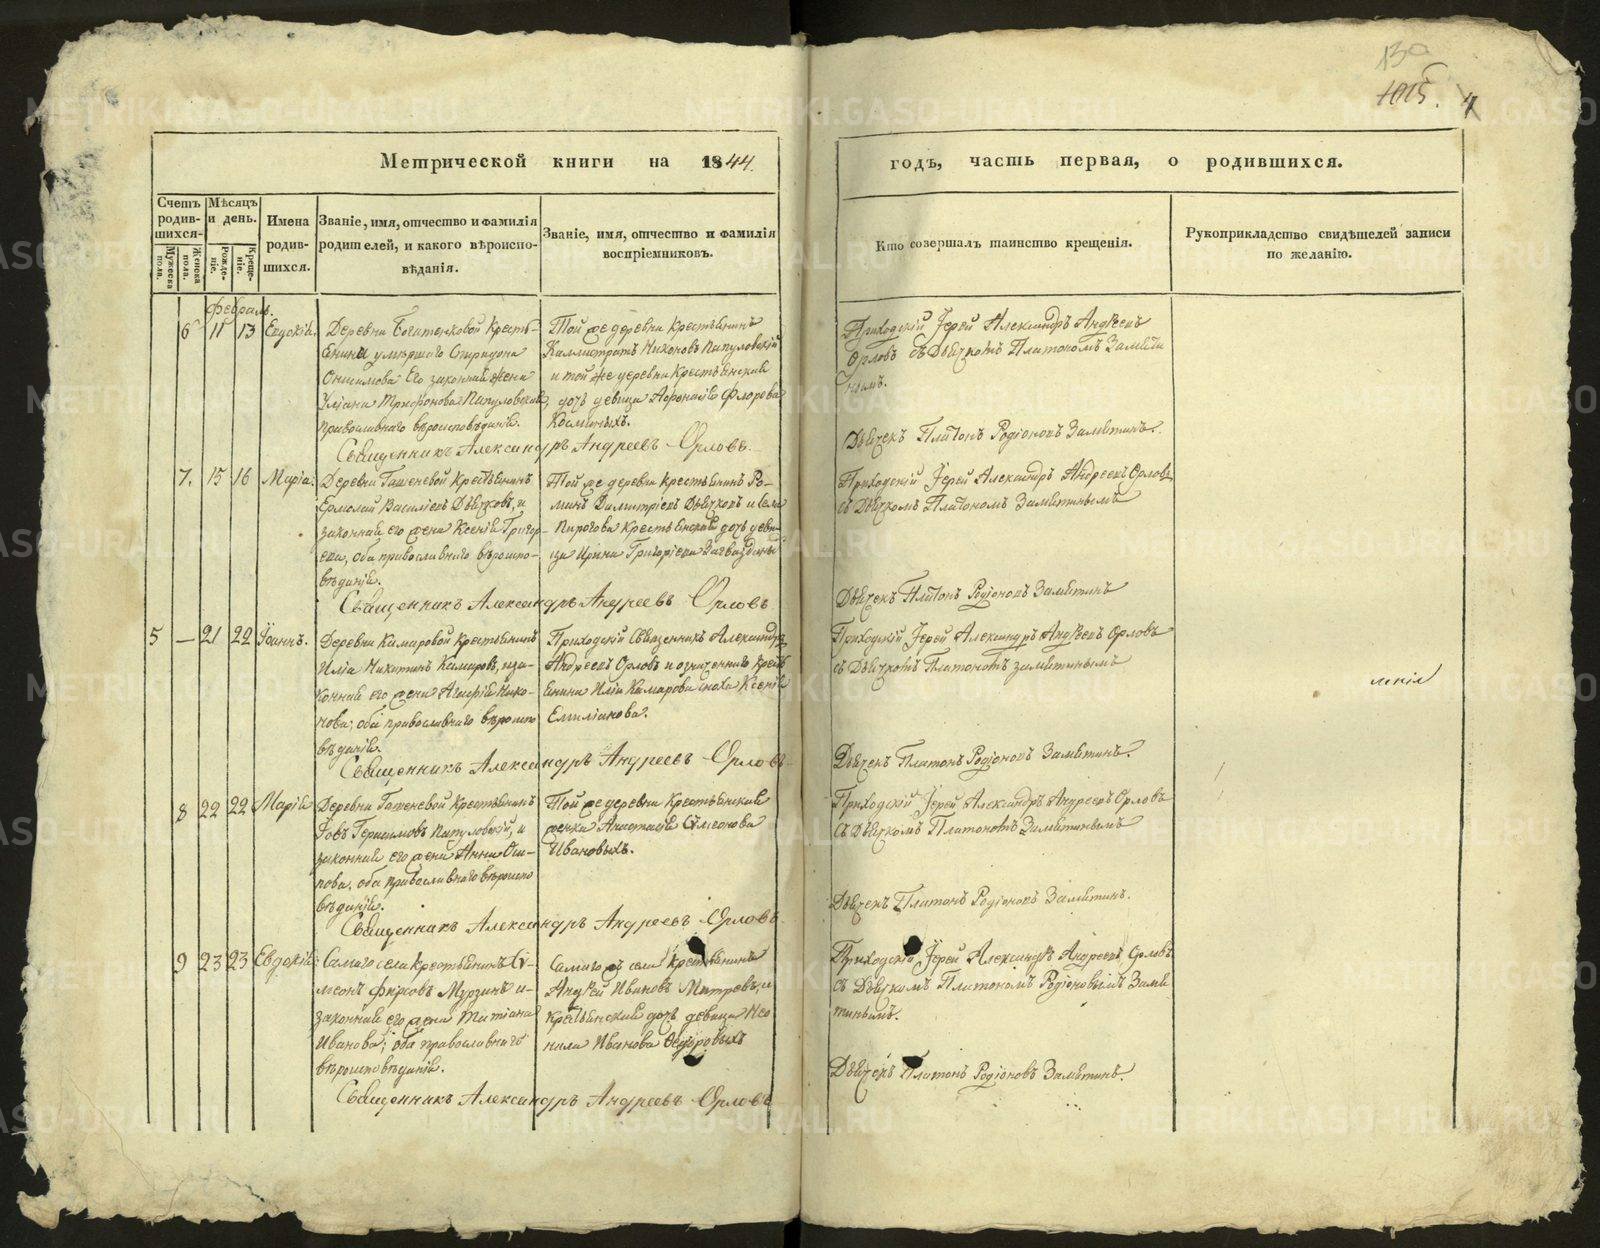 130
1015. 4
Метрической книги на 1844.
годъ, часть первая, о родившихся.
Счетъ родившихся.
Мужеска пола.
Женска пола.
Мѣсяцъ и день.
Рожденіе.
Крещеніе.
Имена родившихся.
Званіе, имя, отчество и фамилія
родителей, и какого вѣроиспо-
вѣданія.
Званіе, имя, отчество и фамилія
воспріемниковъ.
Кто совершалъ таинство крещенія.
Рукоприкладство свидѣтелей записи
по желанію.
Февраль.
6 11 13
Деревни Крестья-
умершаго Спиридона
Онисимова его законная жена
Уліана Трифонова
православнаго вѣроисповѣданія.
Той же деревни крестьянинъ
Каллистратъ Никоновъ
и той же деревни Крестьянская
дочь девица Флорова
Приходскій Іерей Александръ Андреевъ
Орловъ съ Дьячкомъ Платономъ Замяти
нымъ.
Дьячекъ Платонъ Родіоновъ Замятинъ.
Священникъ Александръ Андреевъ Орловъ.
7. 15 16 Марія.
Деревни Крестьянинъ
Ермолай Василіевъ Дьячковъ, и
законная его жена Ксенія Григорь-
ева, оба православнаго вѣроиспо-
вѣданія.
Той же деревни крестьянинъ Ро-
манъ Димитріевъ Дьячковъ и села
Пирогова Крестьянская дочь деви-
ца Ирина Григоріева
Приходскій Іерей Александръ Андреевъ Орловъ
съ Дьячкомъ Платономъ Замятинымъ
Дьячекъ Платонъ Родіоновъ Замятинъ
Священникъ Александръ Андреевъ Орловъ
5 — 21 22 Іоаннъ.
Деревни Камаровой крестьянинъ
Илія Никитинъ Камаровъ, и за-
конная его жена Агафія Нико-
нова; оба православнаго вѣроиспо
вѣданія.
Приходскій Священникъ Александръ
Андреевъ Орловъ и означеннаго крест
янина Иліи Камарова сноха Ксенія
Емиліанова.
Приходскій Іерей Александръ Андреевъ Орловъ
съ Дьячкомъ Платономъ Замятинымъ
Дьячекъ Платонъ Родіоновъ Замятинъ.
Священникъ Александръ Андреевъ Орловъ
8 22 22 Марія
Деревни крестьянинъ
Іовъ Герасимовъ и
законная его жена Анна Оси-
пова, оба православнаго вѣроиспо
вѣданія.
Той же деревни Крестьянская
женка Анастасія Симеонова
Ивановыхъ.
Приходскій Іерей Александръ Андреевъ Орловъ
съ Дьячкомъ Платономъ Замятинымъ
Дьячекъ Платонъ Родіоновъ Замятинъ.
Священникъ Александръ Андреевъ Орловъ
9 23 23 Евдокія
Самаго села крестьянинъ Си-
меонъ Фирсовъ Мурзинъ и
законная его жена Татіана
Иванова; оба православнаго
вѣроисповѣданія.
Самаго села Крестьянинъ
Андрей Ивановъ и
крестьянская дочь девица Нео
нила Иванова Федоровыхъ
Приходскій Іерей Александръ Андреевъ Орловъ
съ Дьячкомъ Платономъ Родіоновымъ Замя
тинымъ.
Дьячекъ Платонъ Родіоновъ Замятинъ.
Священникъ Александръ Андреевъ Орловъ
METRIKI.GASO-URAL.RU